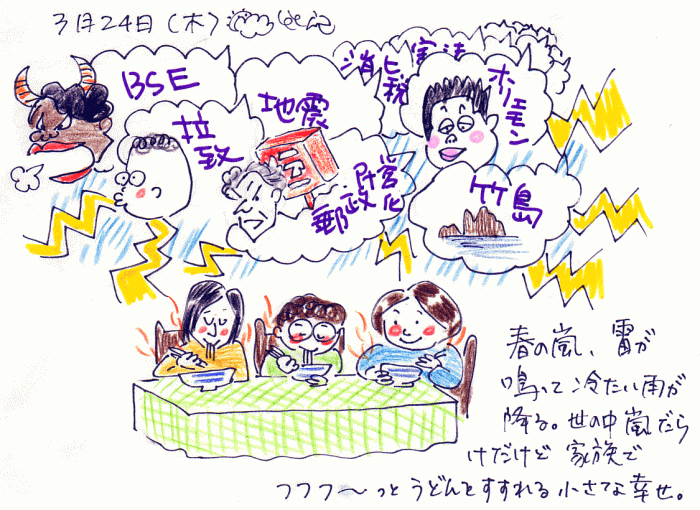 3月24日(木)
BSE
拉致
地震
消費税
憲法
ホリエモン
〒
郵政民営化
竹島
春の嵐、雷が
鳴って冷たい雨が
降る。世の中嵐だら
けだけど 家族で
フフフ〜っと うどんをすすれる 小さな幸せ。